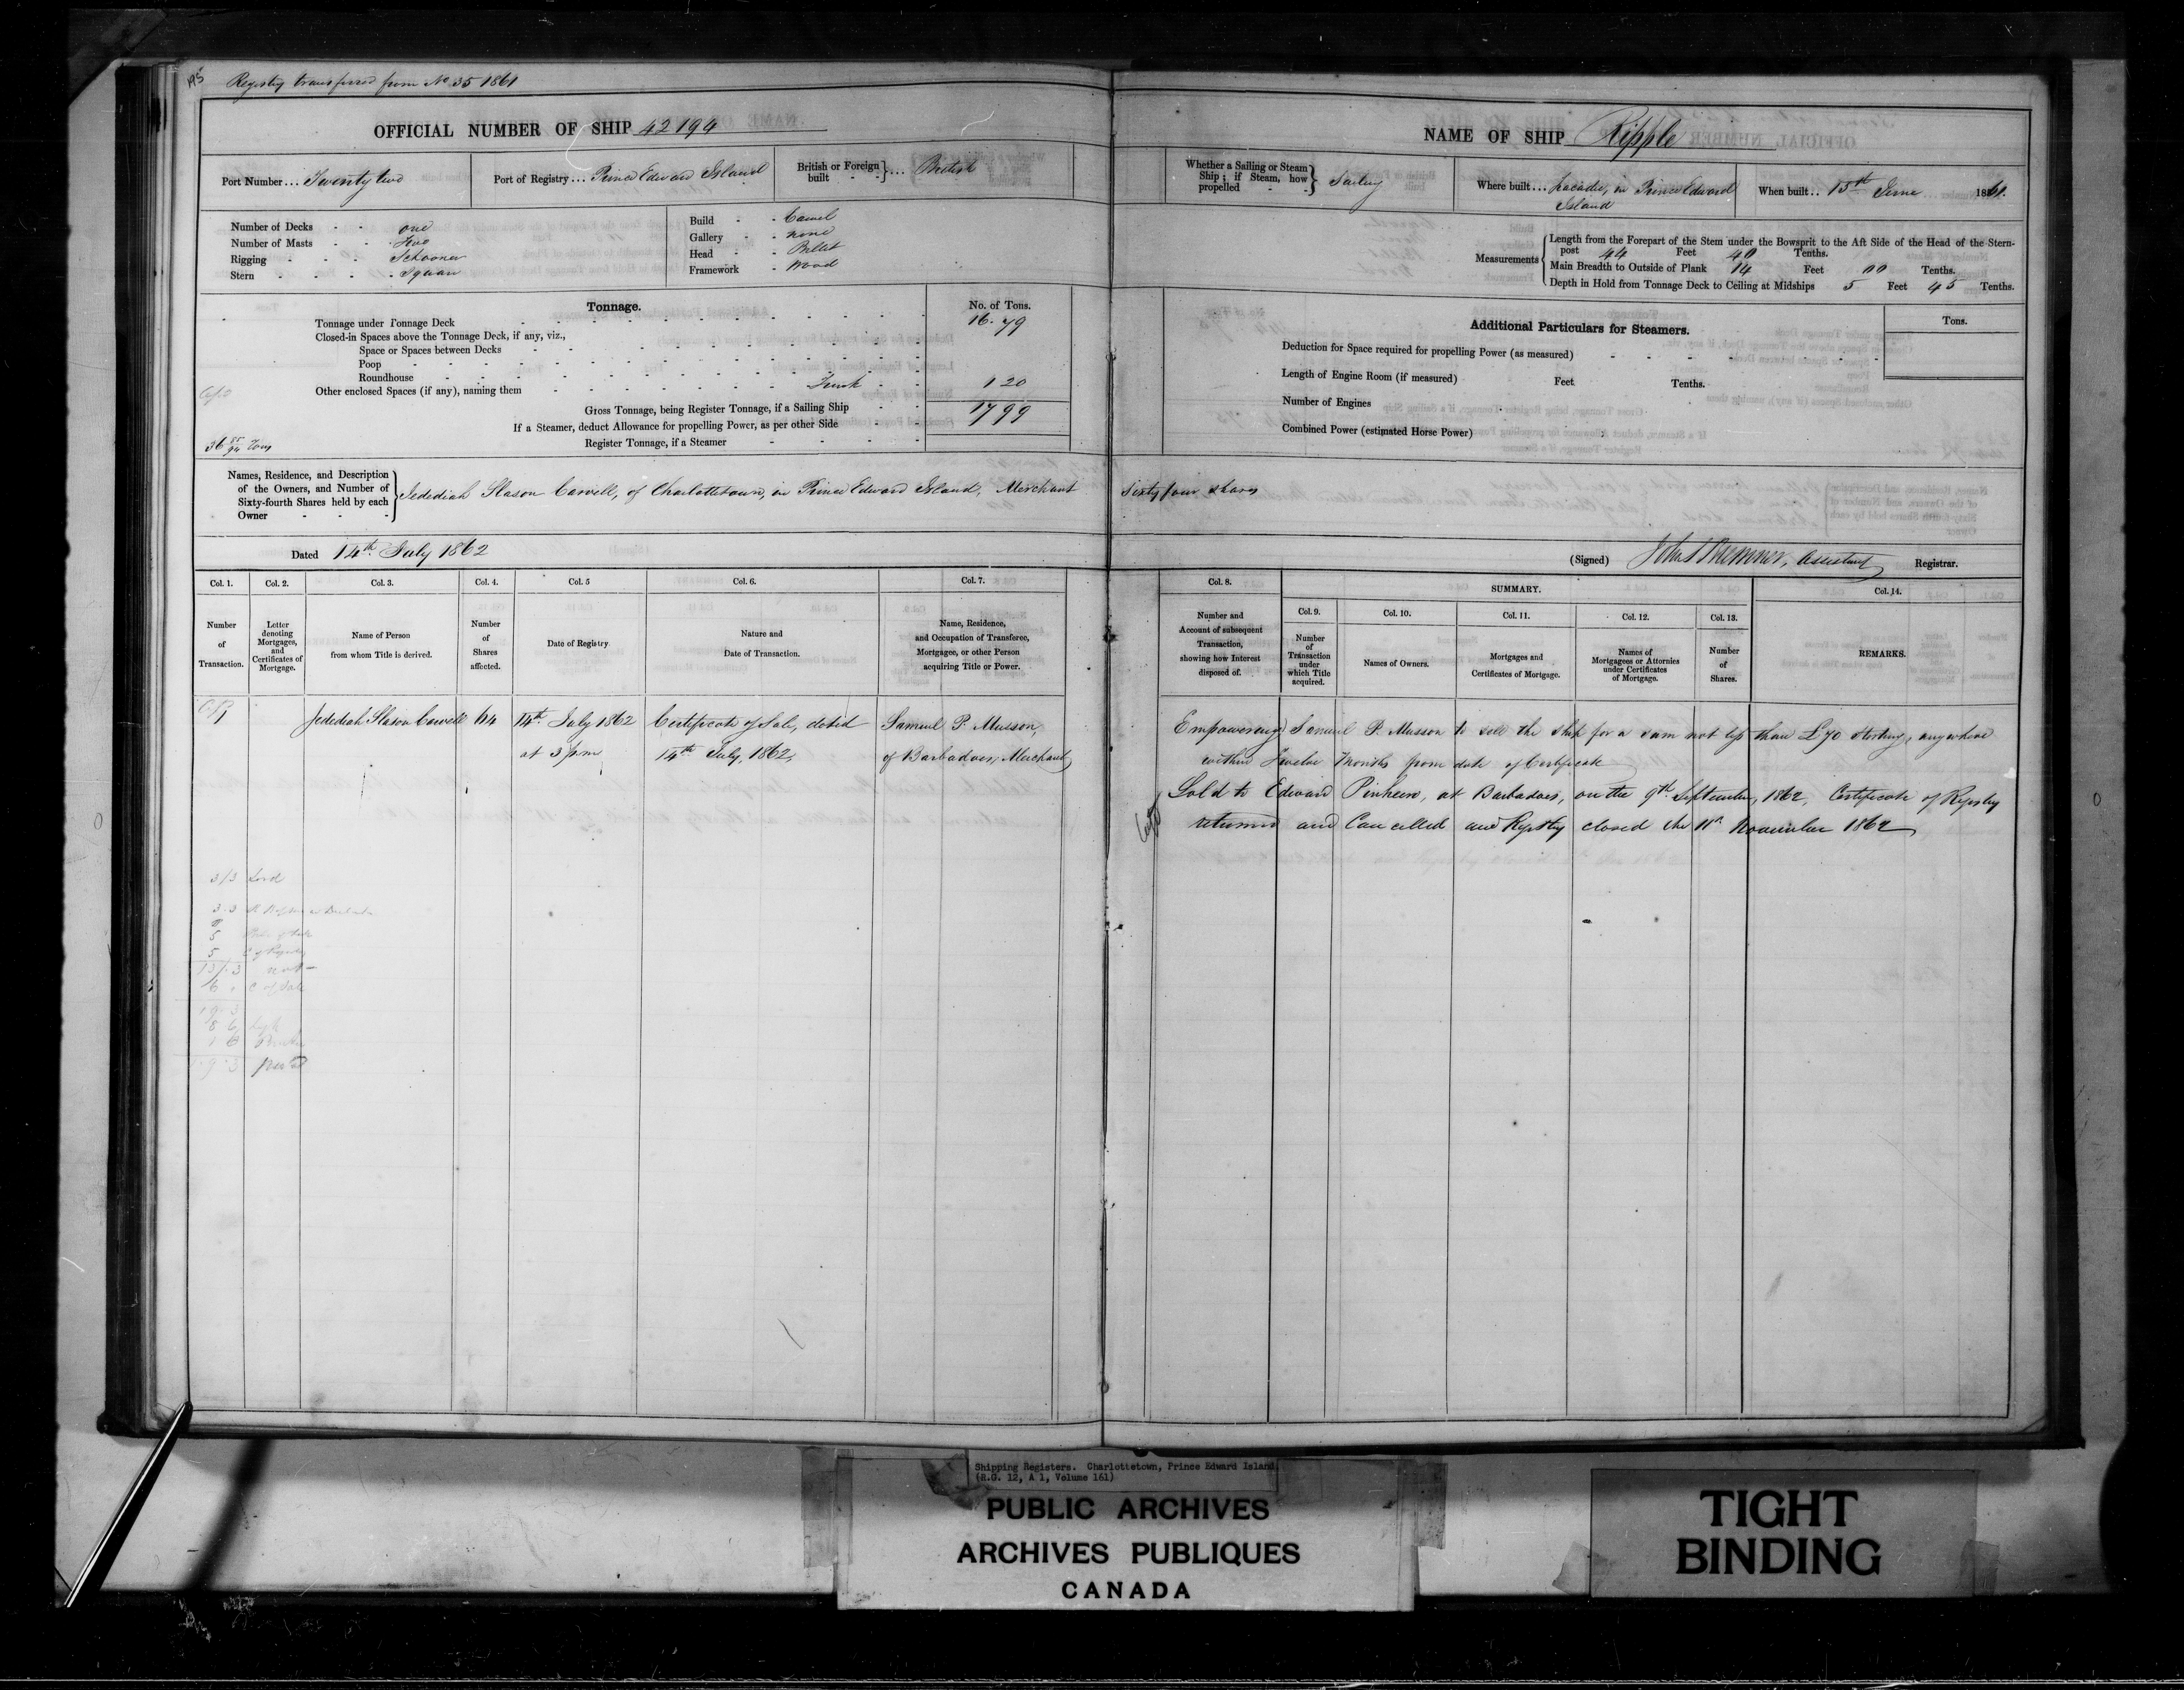 Registry transferred from No 35 1861
OFFICIAL NUMBER OF SHIP 42194
Port Number... Twenty two
Port of Registry... Prince Edward Island
British or Foreign built - - } ... British
Number of Decks - - one
Number of Masts - - Two
Rigging - - - Schooner
Stern - - - - Square
Build - - Carvel
Gallery - - none
Head - - Billet
Framework - Wood
Tonnage.
No. of Tons.
Tonnage under Tonnage Deck 16.79
Closed-in Spaces above the Tonnage Deck, if any, viz.,
Space or Spaces between Decks
Poop
Roundhouse
Other enclosed Spaces (if any), naming them Trunk 1 20
Gross Tonnage, being Register Tonnage, if a Sailing Ship 17 99
If a Steamer, deduct Allowance for propelling Power, as per other Side
Register Tonnage, if a Steamer
36 85/94 Tons
Names, Residence, and Description
of the Owners, and Number of
Sixty-fourth Shares held by each
Owner - - -
Jedediah Slason Carvell, of Charlottetown, in Prince Edward Island, Merchant
Dated 14th July 1862
Col. 1. Col. 2. Col. 3. Col. 4. Col. 5 Col. 6. Col. 7.
Number
of
Transaction.
Letter
denoting
Mortgages,
and
Certificates of
Mortgage.
Name of Person
from whom Title is derived.
Number
of
Shares
affected.
Date of Registry
Nature and
Date of Transaction.
Name, Residence,
and Occupation of Transferee,
Mortgagee, or other Person
acquiring Title or Power.
Jedediah Slason Carvell 64 14th July 1862 Certificate of Sale, dated Samuel P. Musson,
at 3 pm 14th July, 1862, of Barbadoes, Merchant
3/3 Lord
5 C of Registry
13/.3
6 . C of Sale
19.3
8.6
1 6
1.9.3
NAME OF SHIP Ripple
Whether a Sailing or Steam
Ship; if Steam, how
propelled - - } Sailing
Where built... Lacadie, in Prince Edward
Island
When built.. 15th June 1861.
Measurements
Length from the Forepart of the Stem under the Bowsprit to the Aft Side of the Head of the Stern-
post 44 Feet 40 Tenths.
Main Breadth to Outside of Plank 14 Feet 00 Tenths.
Depth in Hold from Tonnage Deck to Ceiling at Midships 5 Feet 45 Tenths.
Additional Particulars for Steamers.
Tons.
Deduction for Space required for propelling Power (as measured)
Length of Engine Room (if measured) Feet Tenths.
Number of Engines
Combined Power (estimated Horse Power)
Sixty four shares
(Signed) Assistant Registrar.
Col. 8. SUMMARY. Col. 14.
Col. 9. Col. 10. Col. 11. Col. 12. Col. 13.
Number and
Account of subsequent
Transaction,
showing how Interest
disposed of.
Number
of
Transaction
under
which Title
acquired.
Names of Owners.
Mortgages and
Certificates of Mortgage.
Names of
Mortgagees or Attornies
under Certificates
of Mortgage.
Number
of
Shares.
REMARKS.
Empowering Samuel P. Musson to sell the ship for a sum not less than £70 sterling, anywhere
within Twelve Months from date of Certificate
Sold to Edward Pinheiro, at Barbadoes, on the 9th September, 1862, Certificate of Registry
returned and Cancelled and Registry closed the 11th November 1862
Shipping Registers. Charlottetown, Prince Edward Island
(R.G. 12, A 1, Volume 161)
PUBLIC ARCHIVES
ARCHIVES PUBLIQUES
CANADA
TIGHT
BINDING